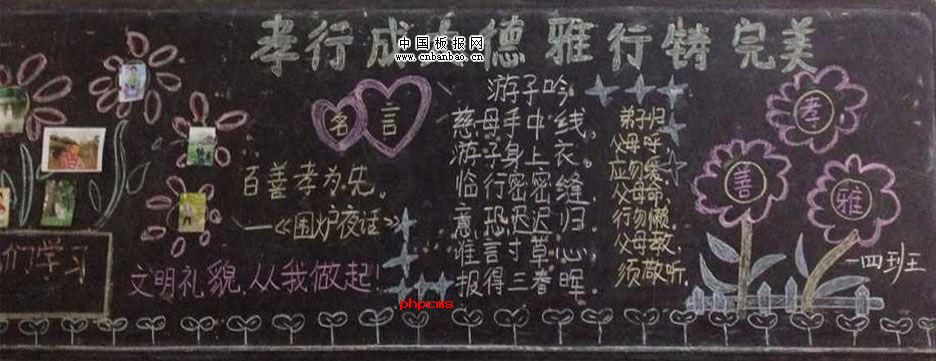 孝行成大德 雅行铸完美
中国板报网
www.cnbanbao.cn
名言
百善孝为先。
—《围炉夜话》
们学习
文明礼貌,从我做起!
游子吟
慈母手中线,
游子身上衣。
临行密密缝,
意恐迟迟归。
谁言寸草心,
报得三春晖。
弟子归
父母呼,
应勿缓。
父母命,
行勿懒。
父母教,
须敬听。
孝
善
雅
一四班
phpcms